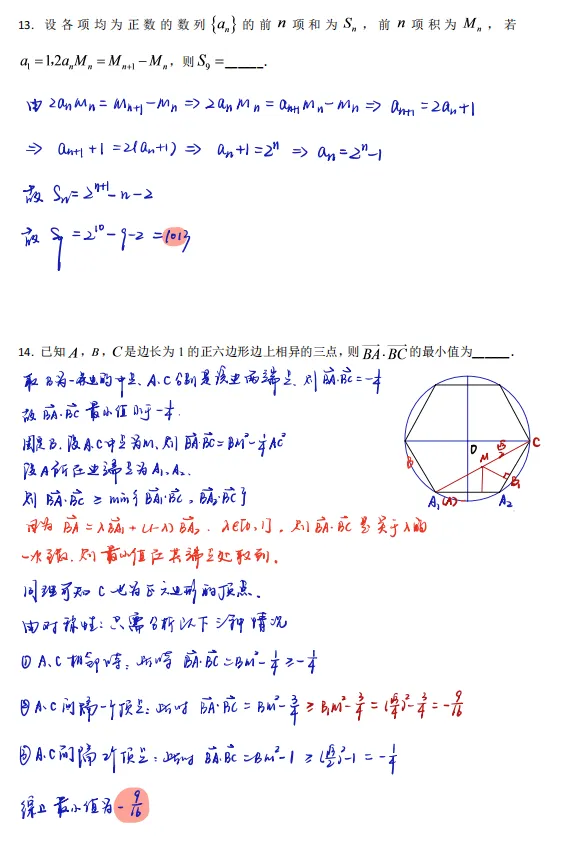 13. 设各项均为正数的数列 {aₙ} 的前 n 项和为 Sₙ，前 n 项积为 Mₙ，若
a₁ = 1,2aₙMₙ = Mₙ₊₁ − Mₙ，则 S₉ = _____.
由 2aₙMₙ = Mₙ₊₁ − Mₙ ⇒ 2aₙMₙ = aₙ₊₁Mₙ − Mₙ ⇒ aₙ₊₁ = 2aₙ+1
⇒ aₙ₊₁ + 1 = 2(aₙ+1) ⇒ aₙ+1 = 2ⁿ ⇒ aₙ = 2ⁿ−1
故 Sₙ = 2ⁿ⁺¹ − n − 2
故 S₉ = 2¹⁰ − 9 − 2 = 1013
14. 已知 A，B，C 是边长为 1 的正六边形边上相异的三点，则 BA·BC 的最小值为_____.
取 B 为一条边的中点, A、C 分别是该边两端点, 则 BA·BC = −1/4
故 BA·BC 最小值小于 −1/4.
固定 B, 设 A、C 中点为 M, 则 BA·BC = BM² − 1/4 AC²
设 A 所在边端点为 A₁、A₂.
则 BA·BC ≥ min{BA₁·BC, BA₂·BC}
因为 BA = λBA₁ + (1−λ)BA₂, λ∈[0,1], 则 BA·BC 是关于 λ 的
一次函数, 则最小值在其端点处取到.
同理可知 C 也为正六边形的顶点.
由对称性: 只需分析以下三种情况
① A、C 相邻时: 此时 BA·BC = BM² − 1/4 ≥ −1/4
② A、C 间隔一个顶点: 此时 BA·BC = BM² − 3/4 ≥ B₁M² − 3/4 = (√3/4)² − 3/4 = −9/16
③ A、C 间隔 2个顶点: 此时 BA·BC = BM² − 1 ≥ (√3/2)² − 1 = −1/4
综上最小值为 −9/16
O
M
√3/2
C
B
B₁
A₁ (A)
A₂